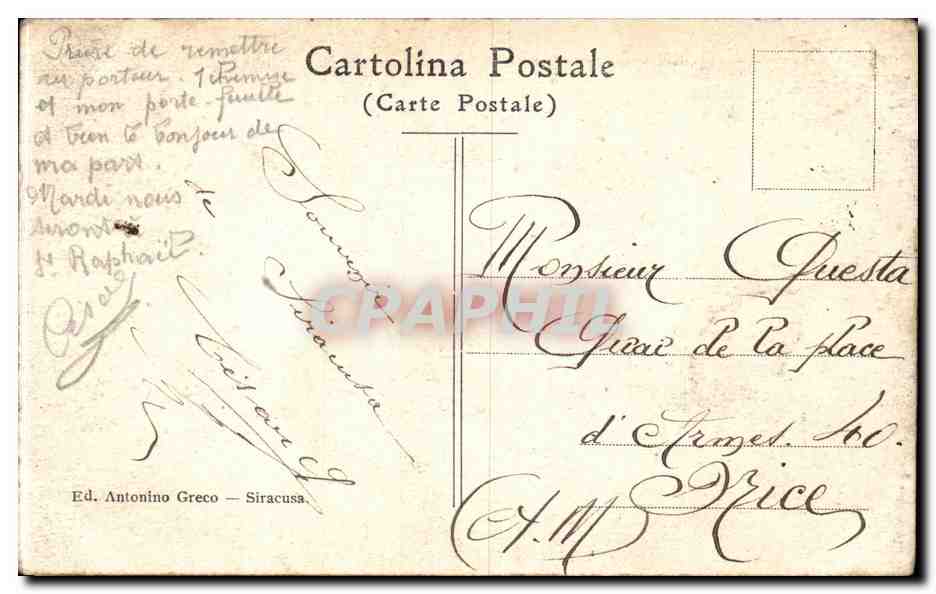 Prière de remettre
au porteur. 1 chemise
et mon porte-feuille
et bien le bonjour de
ma part.
Mardi nous
serons à
St Raphaël.
César
Cartolina Postale
(Carte Postale)
Souvenir
de Siracusa
César
CPAPHIL
Monsieur Questa
Quai de la place
d'Armes. 40.
Nice
(A.M)
Ed. Antonino Greco — Siracusa